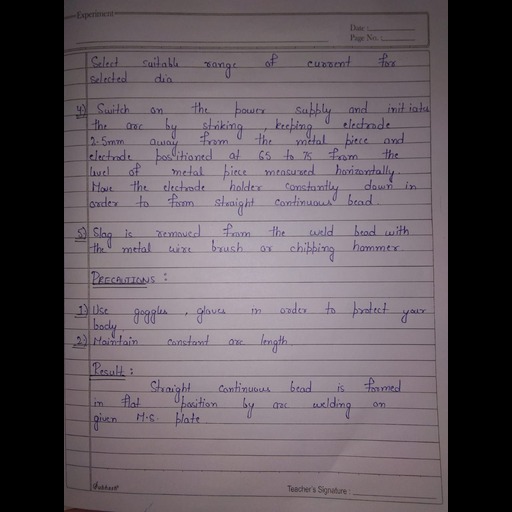 Experiment
Date :
Page No. :
Select suitable range of current for
selected dia
4) Switch on the power supply and initiate
the arc by striking, keeping electrode
2.5mm away from the metal piece and
electrode positioned at 65 to 75 from the
level of metal piece measured horizontally.
Move the electrode holder constantly down in
order to form straight continuous bead.
5) Slag is removed from the weld bead with
the metal wire brush or chipping hammer.
PRECAUTIONS :
1) Use goggles, gloves in order to protect your
body.
2) Maintain constant arc length
Result :
Straight continuous bead is formed
in flat position by arc welding on
given M.S. plate
Teacher's Signature :